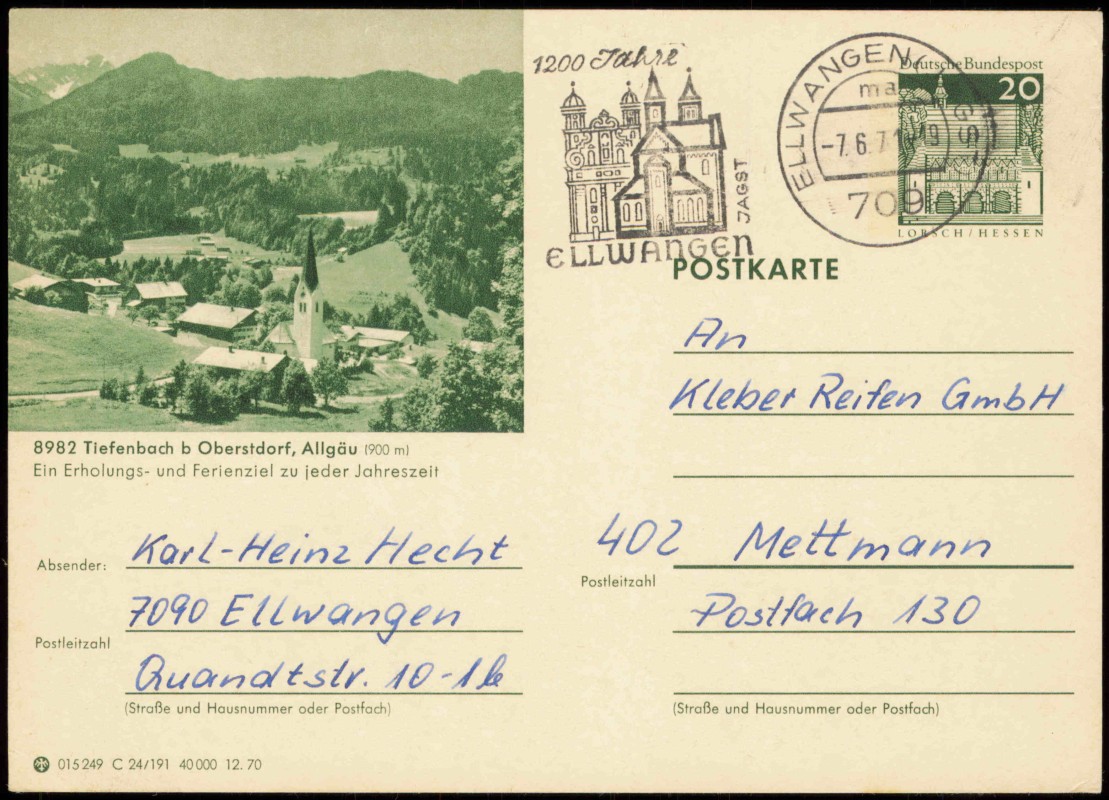 1200 Jahre
JAGST
ELLWANGEN
ELLWANGEN
-7.6.71-19
709
Deutsche Bundespost
20
LORSCH/HESSEN
POSTKARTE
An
Kleber Reifen GmbH
402 Mettmann
Postleitzahl
Postfach 130
(Straße und Hausnummer oder Postfach)
8982 Tiefenbach b Oberstdorf, Allgäu (900 m)
Ein Erholungs- und Ferienziel zu jeder Jahreszeit
Absender:
Karl-Heinz Hecht
7090 Ellwangen
Postleitzahl
Quandtstr. 10-1b
(Straße und Hausnummer oder Postfach)
015249 C 24/191 40000 12.70